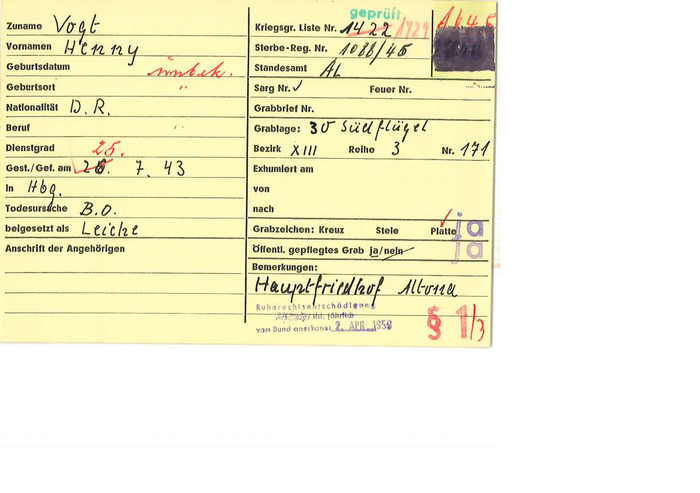 Zuname Vogt
Vornamen Henny
Geburtsdatum unbek.
Geburtsort "
Nationalität D.R.
Beruf "
Dienstgrad 25.
Gest./Gef. am 26. 7. 43
In Hbg.
Todesursache B.O.
beigesetzt als Leiche
Anschrift der Angehörigen
geprüft
Kriegsgr. Liste Nr. 1422 /1729
Sterbe-Reg. Nr. 1088/46
Standesamt AL
Sarg Nr. Feuer Nr.
Grabbrief Nr.
Grablage: 30 Südflügel
Bezirk XIII Reihe 3 Nr. 171
Exhumiert am
von
nach
Grabzeichen: Kreuz Stele Platte ja
Öffentl. gepflegtes Grab ja/nein ja
Bemerkungen:
Hauptfriedhof Altona
Ruherechtsentschädigung
lfd. jährlich
vom Bund anerkannt 2. APR. 1959
§ 1/3